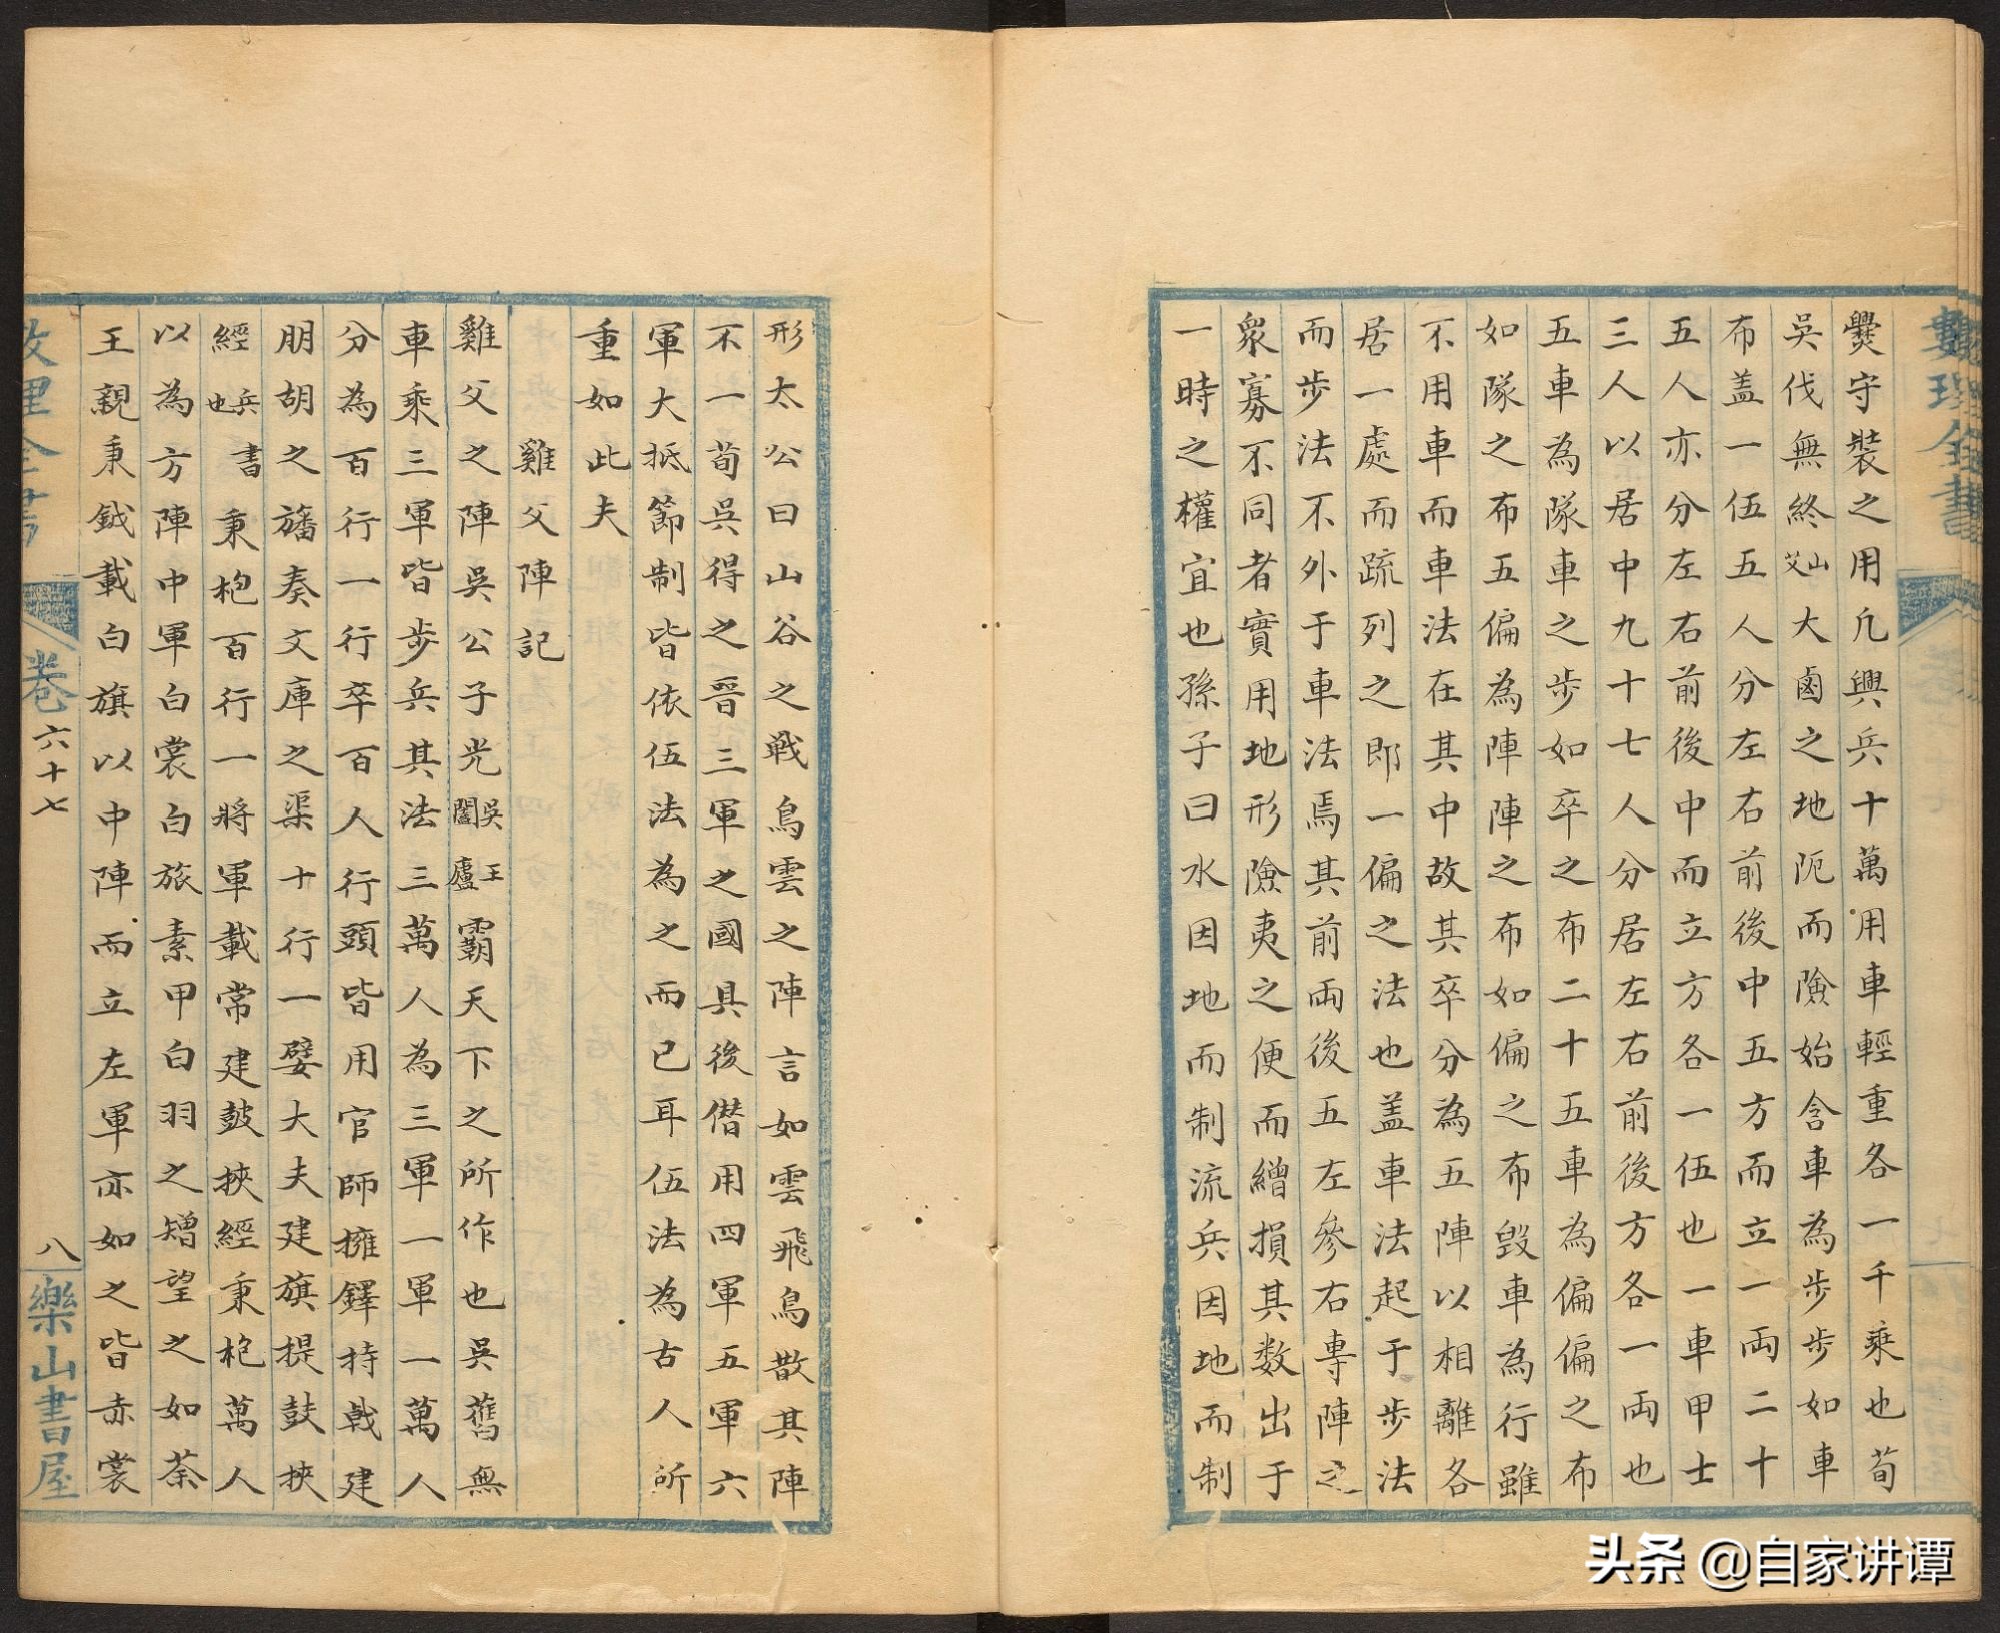 爨守裝之用凢興兵十萬用車輕重各一千乘也荀
吳伐無終山艾大鹵之地阨而險始含車為步步如車
布盖一伍五人分左右前後中五方而立一両二十
五人亦分左右前後中而立方各一伍也一車甲士
三人以居中九十七人分居左右前後方各一両也
五車為隊車之步如卒之布二十五車為偏偏之布
如隊之布五偏為陣陣之布如偏之布毀車為行雖
不用車而車法在其中故其卒分為五陣以相離各
居一處而疏列之即一偏之法也盖車法起于步法
而步法不外于車法焉其前両後五左參右專陣之
衆寡不同者實用地形險夷之便而繒損其数出于
一時之權宜也孫子曰水因地而制流兵因地而制
形太公曰山谷之戰鳥雲之陣言如雲飛鳥散其陣
不一荀吳得之晋三軍之國具後僭用四軍五軍六
軍大抵節制皆依伍法為之而已耳伍法為古人所
重如此夫
雞父陣記
雞父之陣吳公子光吳王闔廬霸天下之所作也吳舊無
車乘三軍皆步兵其法三萬人為三軍一軍一萬人
分為百行一行卒百人行頭皆用官師擁鐸持戟建
朋胡之旛奏文庫之渠十行一嬖大夫建旗提鼓挾
經兵書也秉枹百行一將軍載常建鼓挾經秉枹萬人
以為方陣中軍白裳白旅素甲白羽之矰望之如荼
王親秉鉞載白旗以中陣而立左軍亦如之皆赤裳
數理全書
卷六十七
八
樂山書屋
數理全書
头条 @自家讲谭